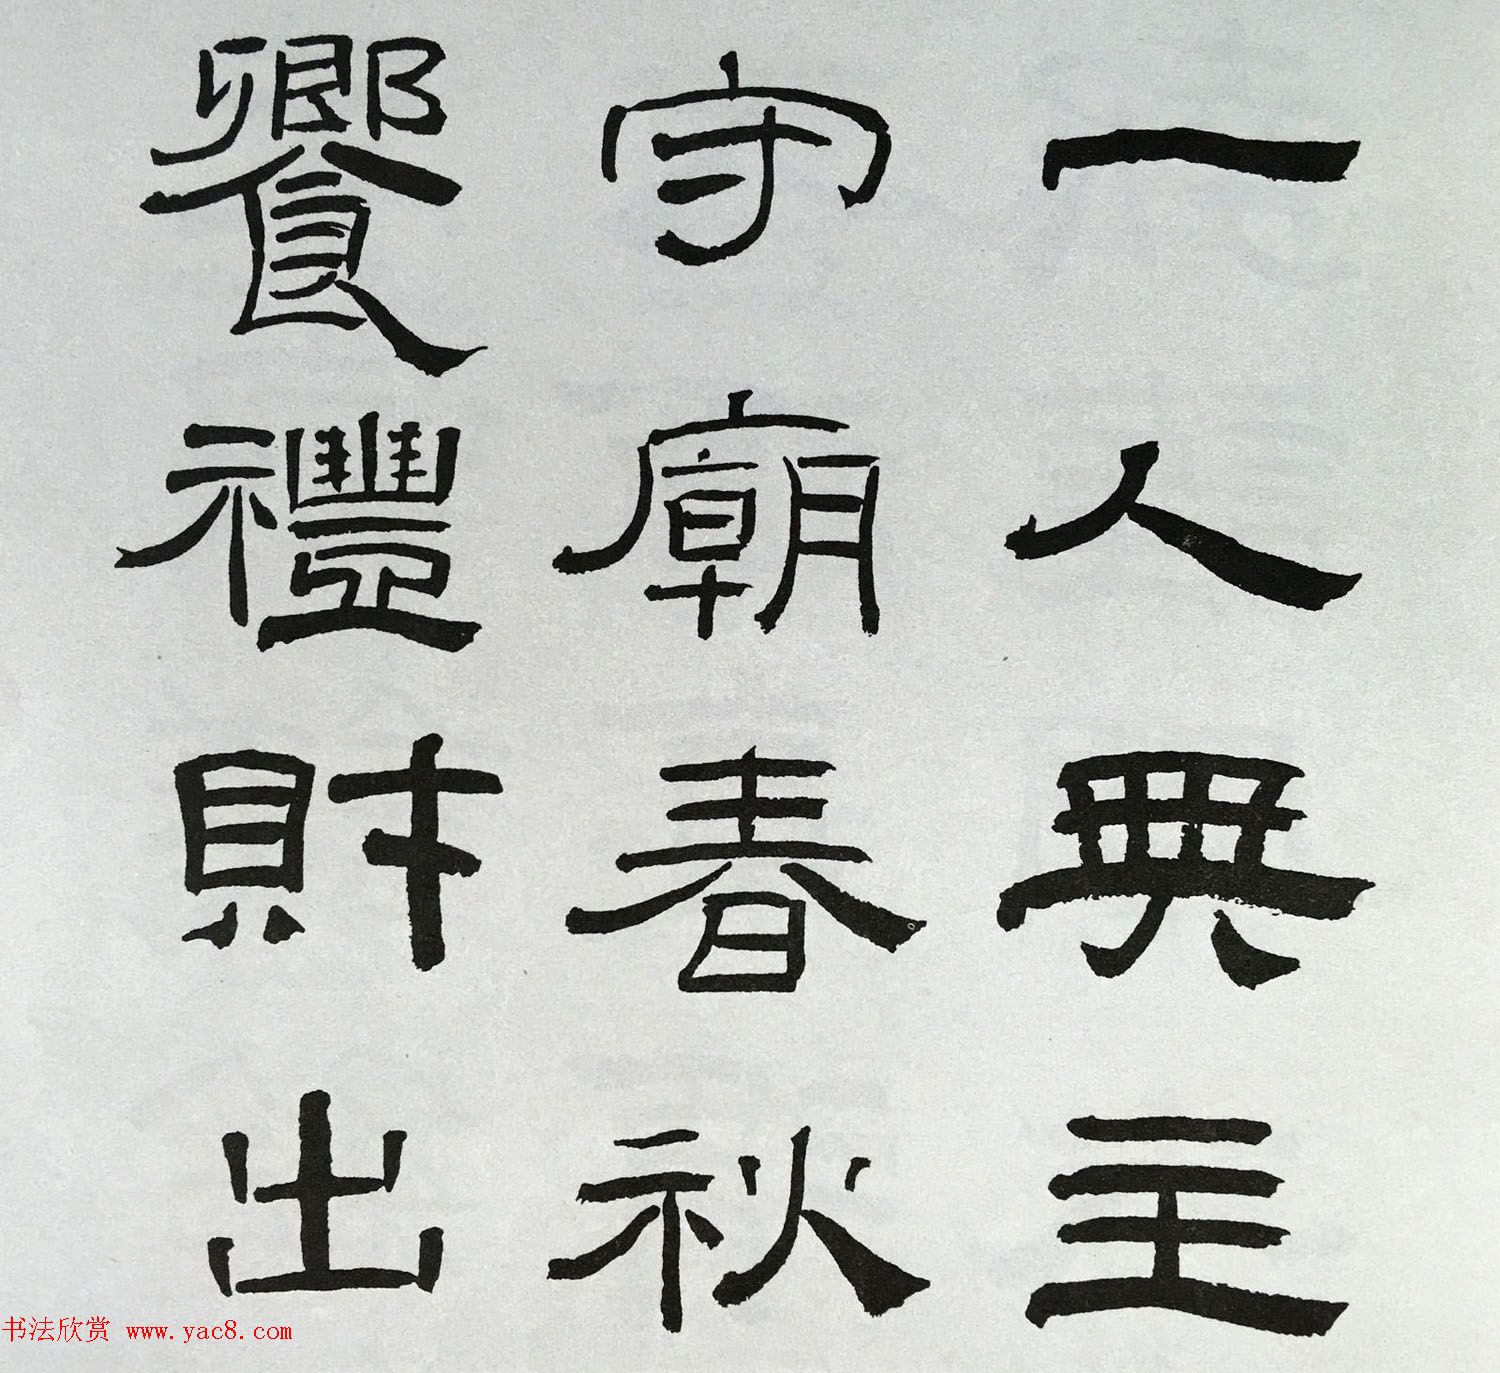 一人典主
守廟春秋
饗禮財出
书法欣赏 www.yac8.com